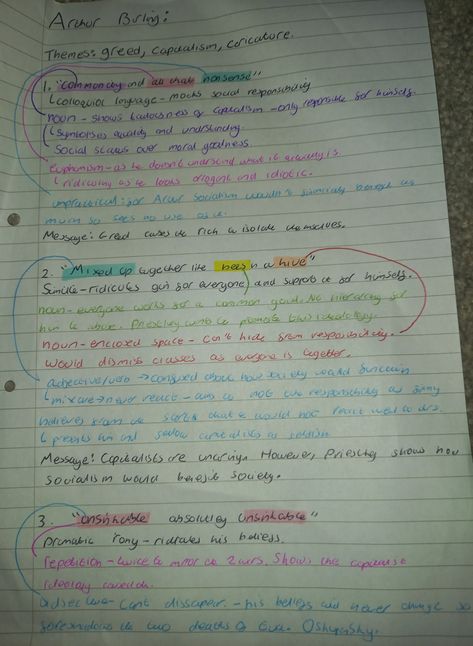 Arthur Birling:
Themes: greed, capitalism, caricature.
1. "Community and all that nonsense"
colloquial language - mocks social responsibility
noun - shows badness of capitalism - only responsible for himself.
symbolises equality and understanding.
Social status over moral goodness.
Euphemism - as he doesn't understand what it actually is.
ridiculing as he looks arrogant and idiotic.
impractical: for Arthur Socialism wouldn't financially benefit as
much so sees no use in it.
Message: Greed causes the rich to isolate themselves.
2. "Mixed up together like bees in a hive"
Simile - ridicules for everyone and support for himself.
noun - everyone works for a common goal. No hierarchy for
him to abuse. Priestley wants to promote this ideology.
noun - enclosed space - Can't hide from responsibility.
Would dismiss classes as everyone is together.
adjective/verb → confused about how society would function
mixture → never react - aims to not take responsibility as
believes from the start that he would not react well to
presents him and fellow capitalists as selfish
Message! Capitalists are uncaring. However, Priestley shows how
socialism would benefit society.
3. "Unsinkable absolutely unsinkable"
Dramatic irony - ridicules his beliefs.
repetition - twice to mirror the 2 wars. Shows the capitalist
ideology
adjective - Can't disappear. - his beliefs will never change so
foreshadows the two deaths of Eva.